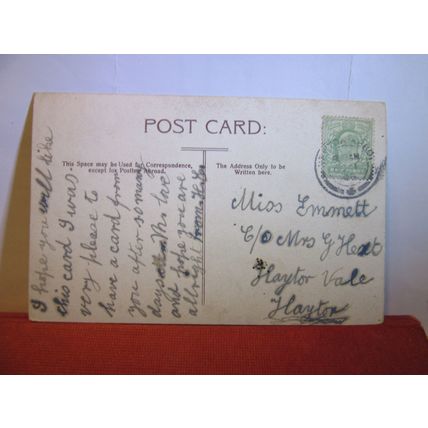 POST CARD:
This Space may be Used for Correspondence,
except for Posting Abroad.
The Address Only to be
Written here.
I hope you will like
this card I was
very please to
have a card from
you after so many
days with love
and hope you are
allright from
Miss Emmett
C/o Mrs G Hext
Haytor Vale
Haytor